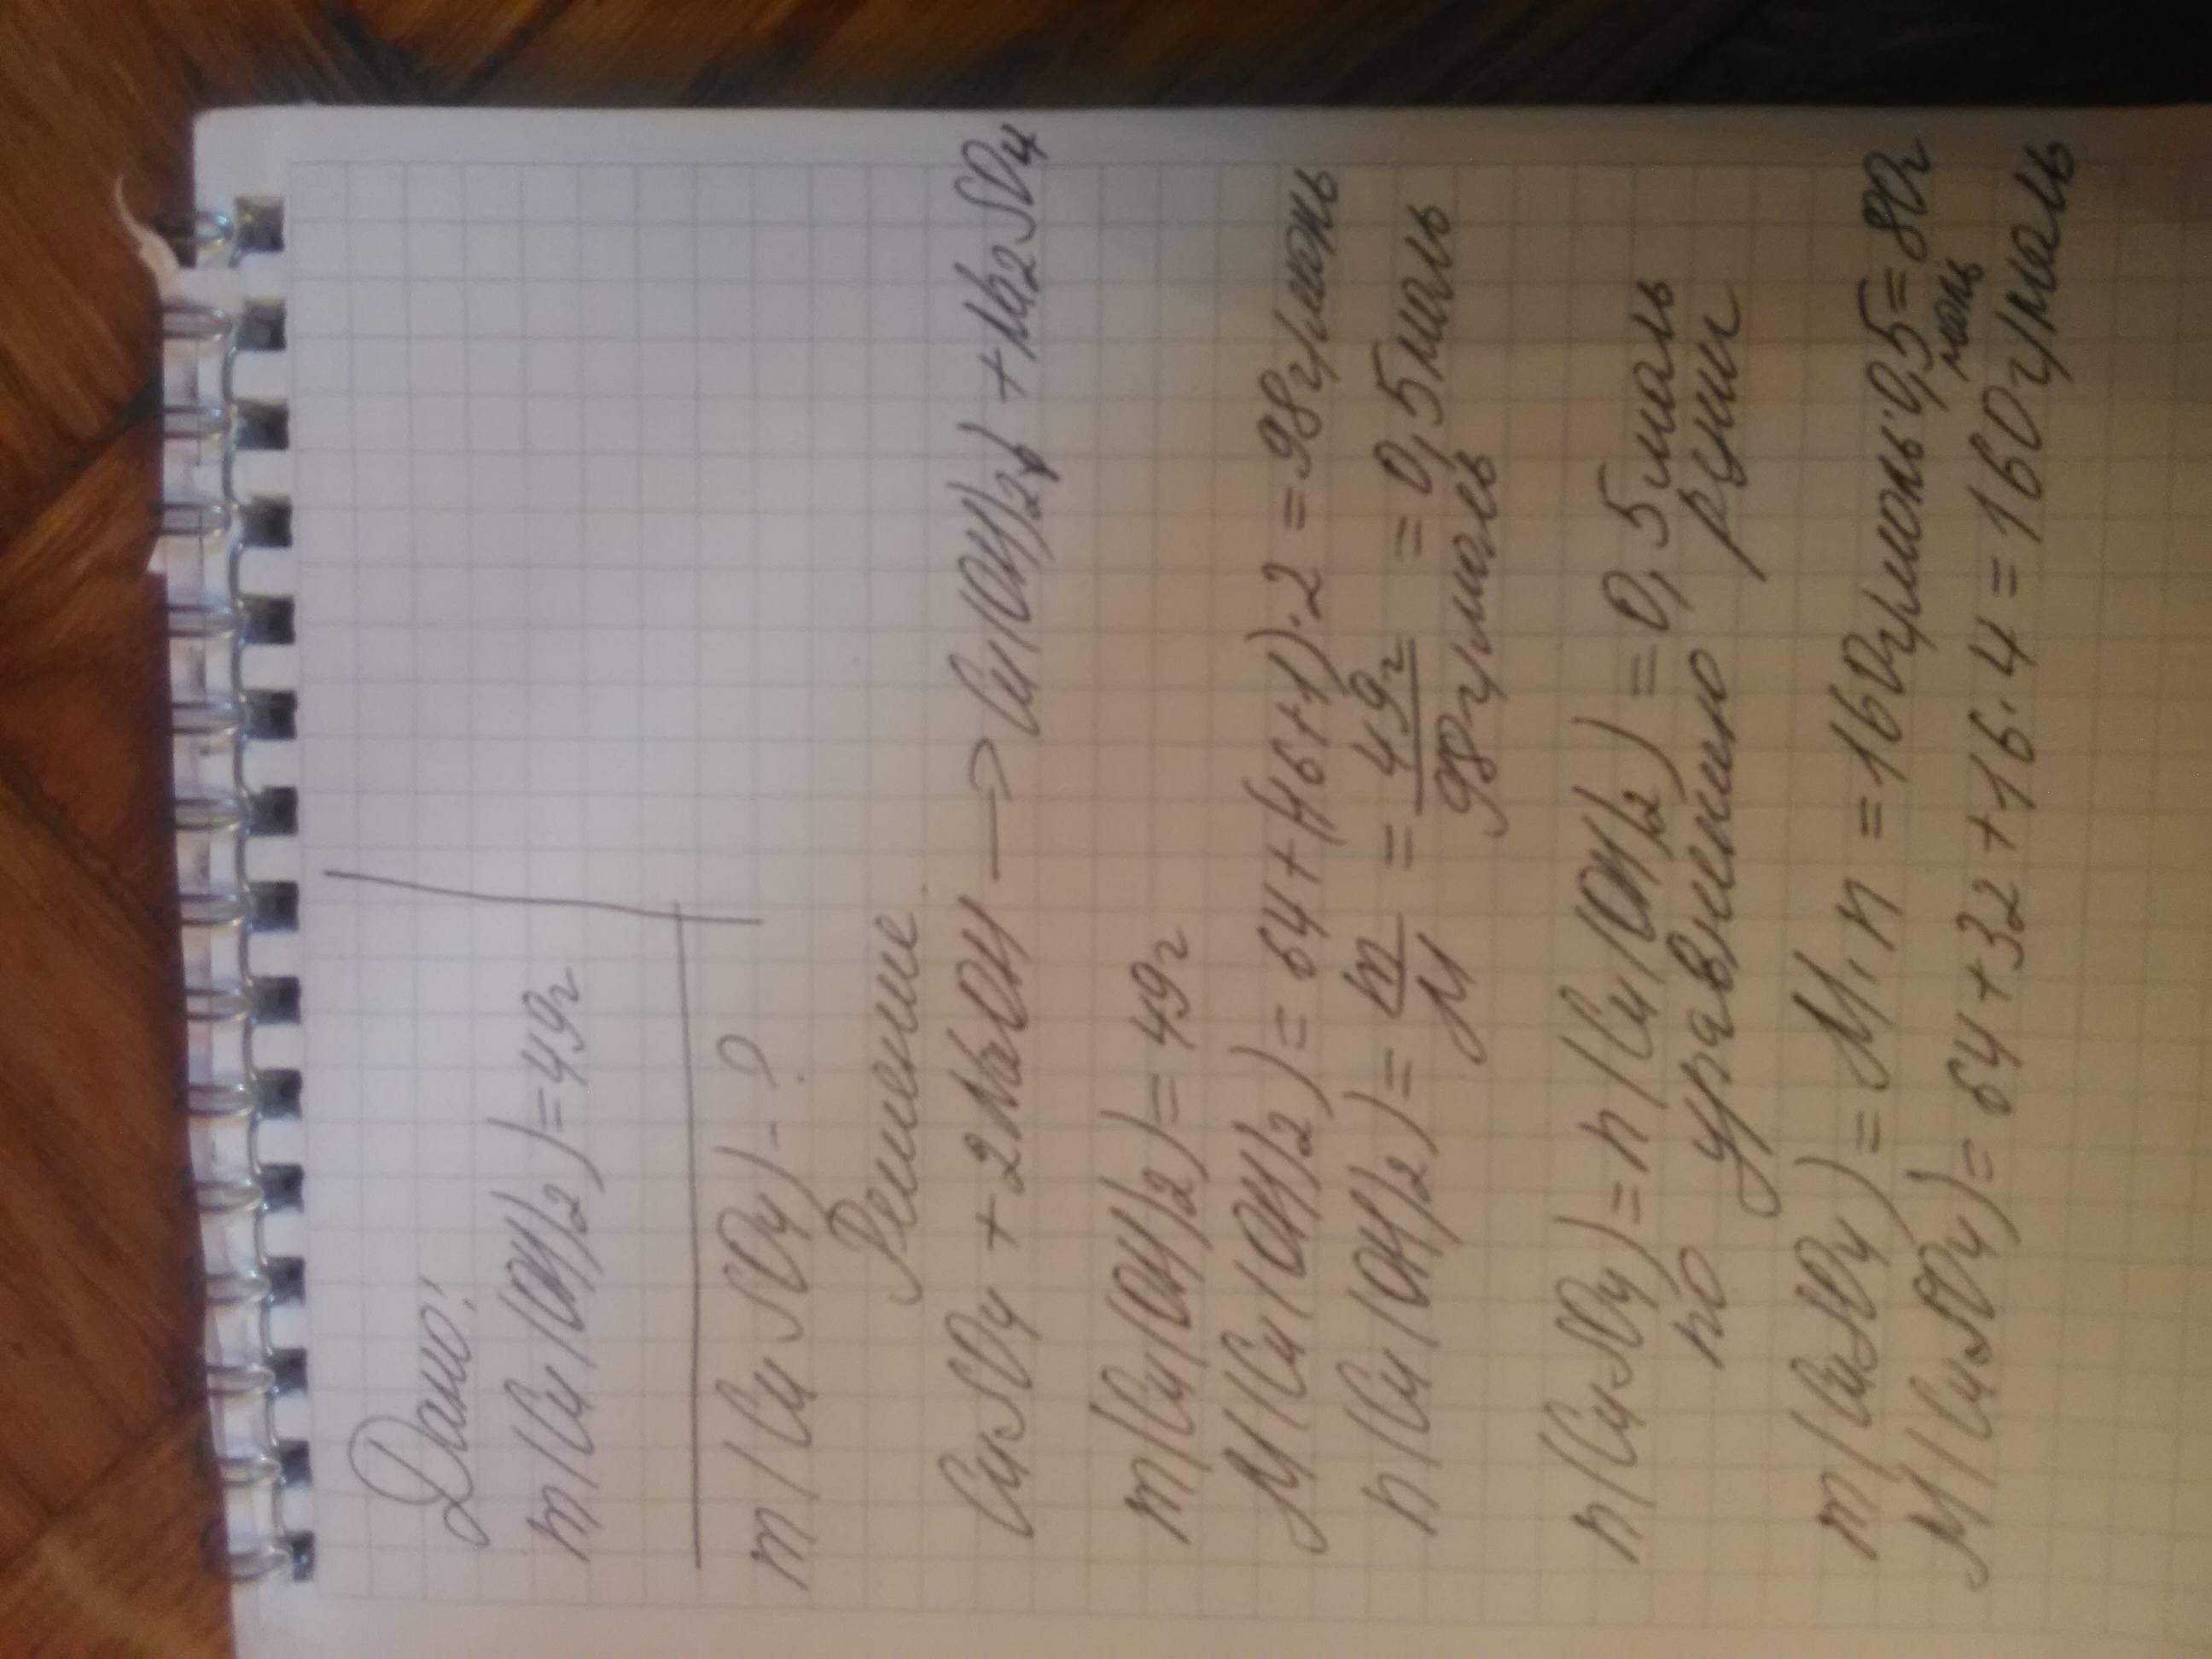 Дано:
m(Cu(OH)2)=49г
m(CuSO4)-?
Решение.
CuSO4 + 2NaOH → Cu(OH)2↓ + Na2SO4
m(Cu(OH)2)=49г
M(Cu(OH)2)=64+(16+1)·2=98г/моль
n(Cu(OH)2)= m/M = 49г/98г/моль = 0,5моль
n(CuSO4)=n(Cu(OH)2)=0,5моль
по уравнению р-ции
m(CuSO4)=M·n=160г/моль·0,5моль=80г
M(CuSO4)=64+32+16·4=160г/моль